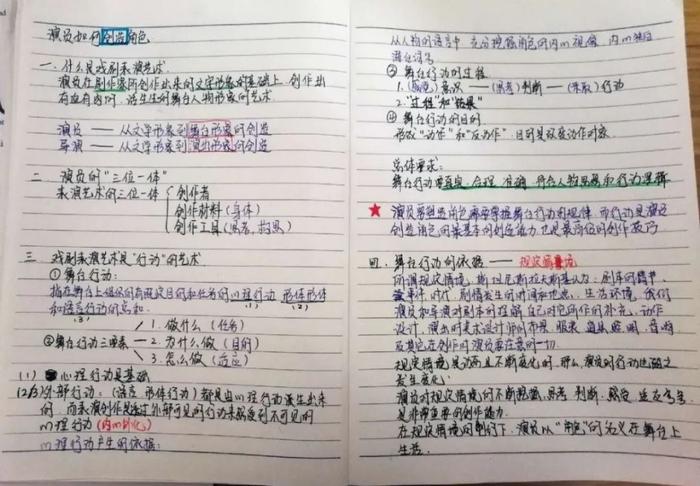 演员如何创造角色
一. 什么是戏剧表演艺术.
演员在剧作家所创作出来的文学形象的基础上, 创作出
有血有肉的、活生生的舞台人物形象的艺术
演员 —— 从文学形象到舞台形象的创造
导演 —— 从文学形象到演出形象的创造
二 演员的"三位一体"
表演艺术的三位一体
创作者
创作材料(身体)
创作工具(思考,
三 戏剧表演艺术是"行动"的艺术
①舞台行动:
指在舞台上组织的有规定目的和任务的心理行动 形体
和语言行动的总和.
②舞台行动三要素
1. 做什么 (任务)
2. 为什么做 (目的)
3. 怎么做 (适应)
(1) 心理行动是基础
(2/3)外部行动: (语言 形体行动) 都是由心理行动派生出来
的 而表演创作是通过外部可见的行动来感受到不可见的
心理行动 (内心外化)
心理行动产生的依据:
从人物的语言中 充分挖掘角色的内心视像 内心独白
潜台词
③ 舞台行动的过程
1. (感觉) 意识 —— (思考) 判断 —— (采取) 行动
2. "过程"和"结果"
④ 舞台行动的目的
形成"动作"和"反动作". 目的是改变动作对象
总体要求:
舞台行动要真实 合理 准确 符合人物思想和行动逻辑
★ 演员要创造角色需要掌握舞台行动的规律 而行动是演员
创造角色的最基本的创造能力也是最高级的创作技巧
四. 舞台行动的依据 —— 规定情境
所谓规定情境, 斯坦尼斯拉夫斯基认为: 剧本的情节.
事件. 时代 剧情发生的时间和地点.. 生活环境. 我们
演员和导演对剧本的理解 自己对它所作的补充. 动作
设计. 演出时美术设计师的布景 服装 道具 照明. 音响
及其它在创作时演员要注意的一切.
规定情境是动而且不断变化的 那么. 演员的行动也随之
发生变化.
演员对规定情境的不断 思考 判断. 感受 适应
是非常重要的创作能力.
在规定情境的制约下. 演员以"角色"的名义在舞台上
生活.